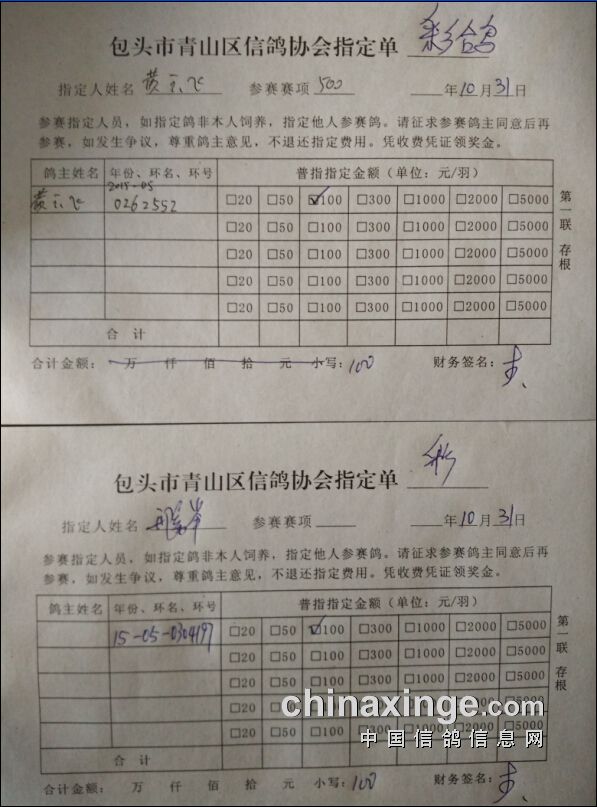 包头市青山区信鸽协会指定单 彩合鸽
指定人姓名 黄 飞 参赛赛项 500 年10月31日
参赛指定人员,如指定鸽非本人饲养,指定他人参赛鸽。请征求参赛鸽主同意后再
参赛,如发生争议,尊重鸽主意见,不退还指定费用。凭收费凭证领奖金。
鸽主姓名 年份、环名、环号 普指指定金额(单位:元/羽)
2015-05
黄 飞 0262552 □20 □50 ☑100 □300 □1000 □2000 □5000
□20 □50 □100 □300 □1000 □2000 □5000
□20 □50 □100 □300 □1000 □2000 □5000
□20 □50 □100 □300 □1000 □2000 □5000
□20 □50 □100 □300 □1000 □2000 □5000
合 计
第一联 存根
合计金额: 万 仟 佰 拾 元 小写:100 财务签名:
包头市青山区信鸽协会指定单 彩
指定人姓名 参赛赛项 年10月31日
参赛指定人员,如指定鸽非本人饲养,指定他人参赛鸽。请征求参赛鸽主同意后再
参赛,如发生争议,尊重鸽主意见,不退还指定费用。凭收费凭证领奖金。
鸽主姓名 年份、环名、环号 普指指定金额(单位:元/羽)
15-05-0304197 □20 □50 ☑100 □300 □1000 □2000 □5000
□20 □50 □100 □300 □1000 □2000 □5000
□20 □50 □100 □300 □1000 □2000 □5000
□20 □50 □100 □300 □1000 □2000 □5000
□20 □50 □100 □300 □1000 □2000 □5000
合 计
第一联 存根
合计金额: 万 仟 佰 拾 元 小写:100 财务签名:
chinaxinge.com
中国信鸽信息网